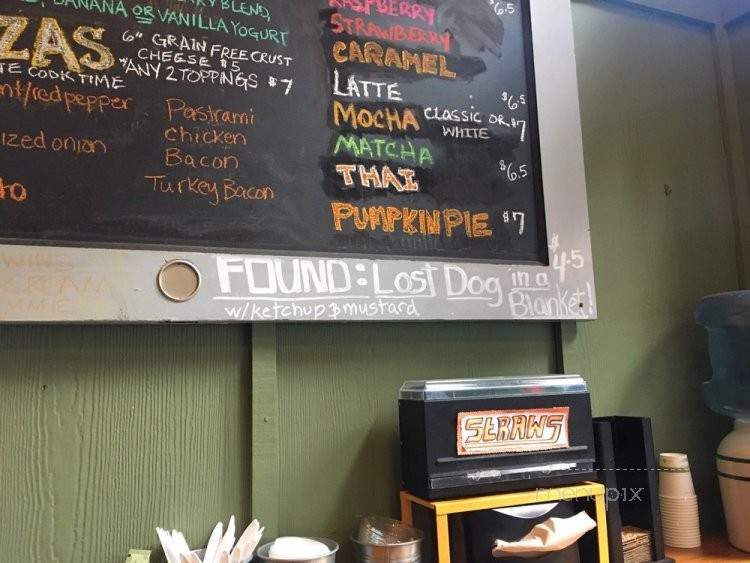 BANANA OR VANILLA YOGURT
6" GRAIN FREE CRUST
CHEESE $5
ANY 2 TOPPINGS $7
COOK TIME
red pepper
onion
Pastrami
chicken
Bacon
Turkey Bacon
RASPBERRY
$6.5
STRAWBERRY
CARAMEL
LATTE
$6.5
MOCHA CLASSIC OR WHITE $7
MATCHA
THAI
$6.5
PUMPKIN PIE $7
FOUND: Lost Dog in a Blanket!
$4.5
w/ketchup & mustard
STRAWS
menupix